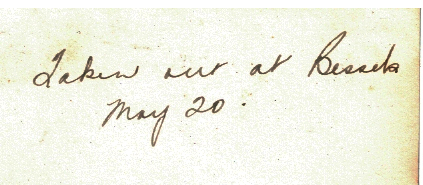 Taken out at Bessels
May 20.